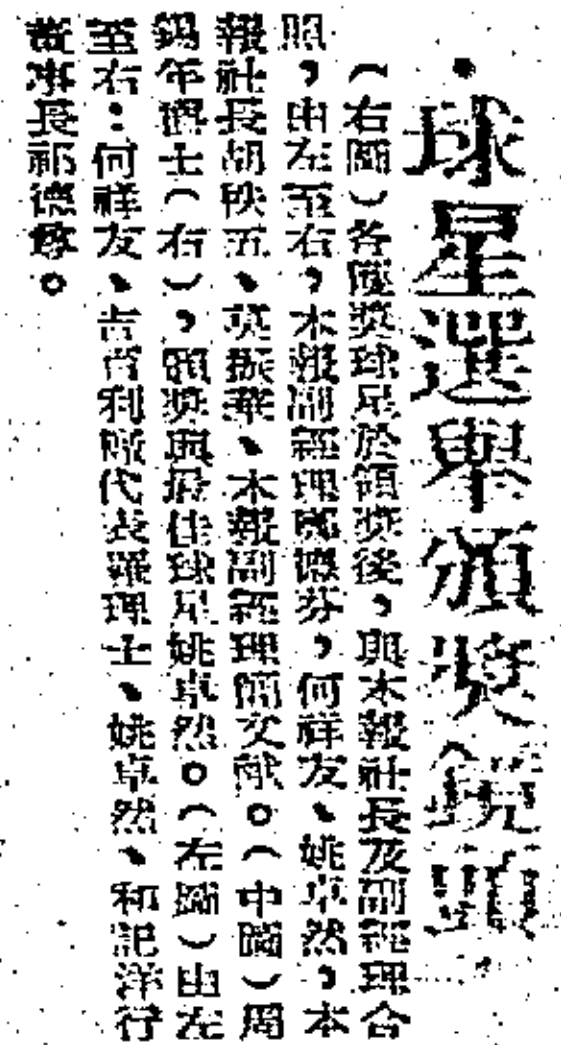 ·球星選舉頒獎鏡頭
(右圖)各匯獎球星於領獎後,與本報社長及副經理合
照,由左至右,本報副經理鄺德芬,何祥友、姚卓然,本
報社長胡秩五、莫振華、本報副經理簡文献。(中圖)周
錫年爵士(右),頒獎與最佳球星姚卓然。(左圖)由左
至右:何祥友、吉利代表羅理士、姚卓然、和記洋行
董事長祁德尊。